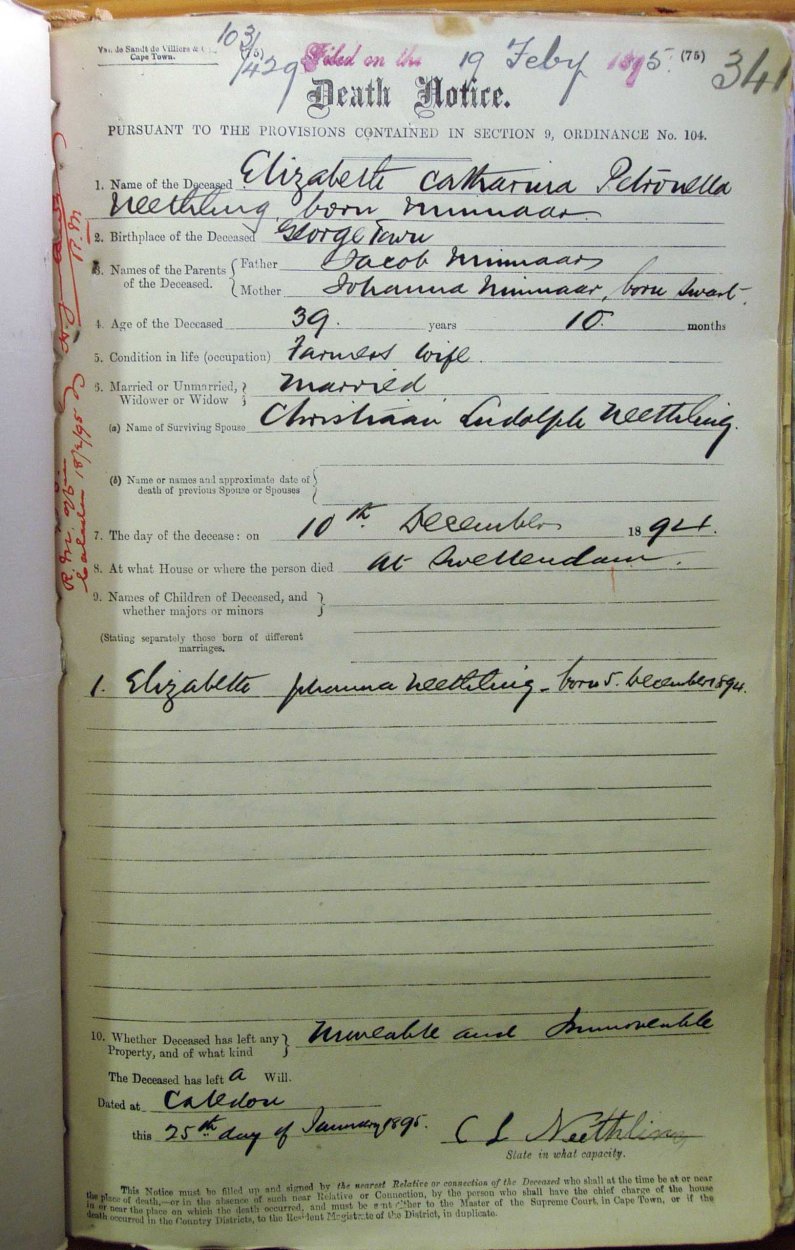 Van de Sandt de Villiers & C
Cape Town.
103/1429
(75)
Filed on the 19 Feby 1895. (75) 341
Death Notice.
PURSUANT TO THE PROVISIONS CONTAINED IN SECTION 9, ORDINANCE No. 104.
1. Name of the Deceased Elizabeth Catharina Petronella
Neethling born Minnaar
2. Birthplace of the Deceased George Town
3. Names of the Parents of the Deceased. { Father Jacob Minnaar
Mother Johanna Minnaar, born Swart.
4. Age of the Deceased 39. years 10. months
5. Condition in life (occupation) Farmers Wife.
6. Married or Unmarried, Widower or Widow } Married
(a) Name of Surviving Spouse Christiaan Ludolph Neethling.
(b) Name or names and approximate date of death of previous Spouse or Spouses {
7. The day of the decease: on 10th December 1894.
8. At what House or where the person died at Swellendam.
9. Names of Children of Deceased, and whether majors or minors }
(Stating separately those born of different marriages.
1. Elizabeth Johanna Neethling - born 5. December 1894.
10. Whether Deceased has left any Property, and of what kind } Moveable and Immoveable
The Deceased has left a Will.
Dated at Caledon
this 25th day of January 1895. C L Neethling
State in what capacity.
This Notice must be filled up and signed by the nearest Relative or connection of the Deceased who shall at the time be at or near
the place of death,—or in the absence of such near Relative or Connection, by the person who shall have the chief charge of the house
in or near the place on which the death occurred, and must be sent either to the Master of the Supreme Court, in Cape Town, or if the
death occurred in the Country Districts, to the Resident Magistrate of the District, in duplicate.
R.M. Office
Caledon 18/2/95
R.M